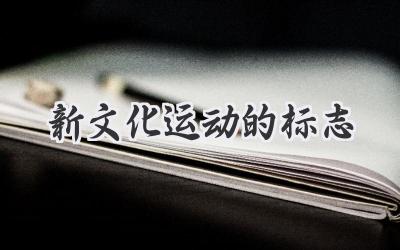 新文化运动的标志